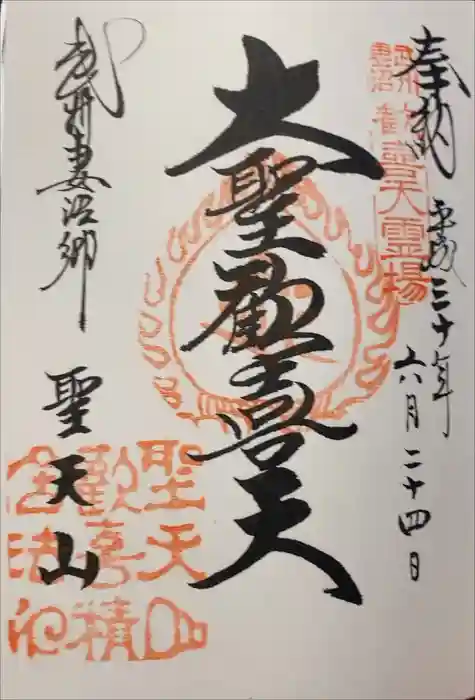 奉納 平成三十年
六月二十四日
武州妻沼 歓喜天霊場
大聖歓喜天
武州妻沼郷
聖天山
聖天山
歓喜精